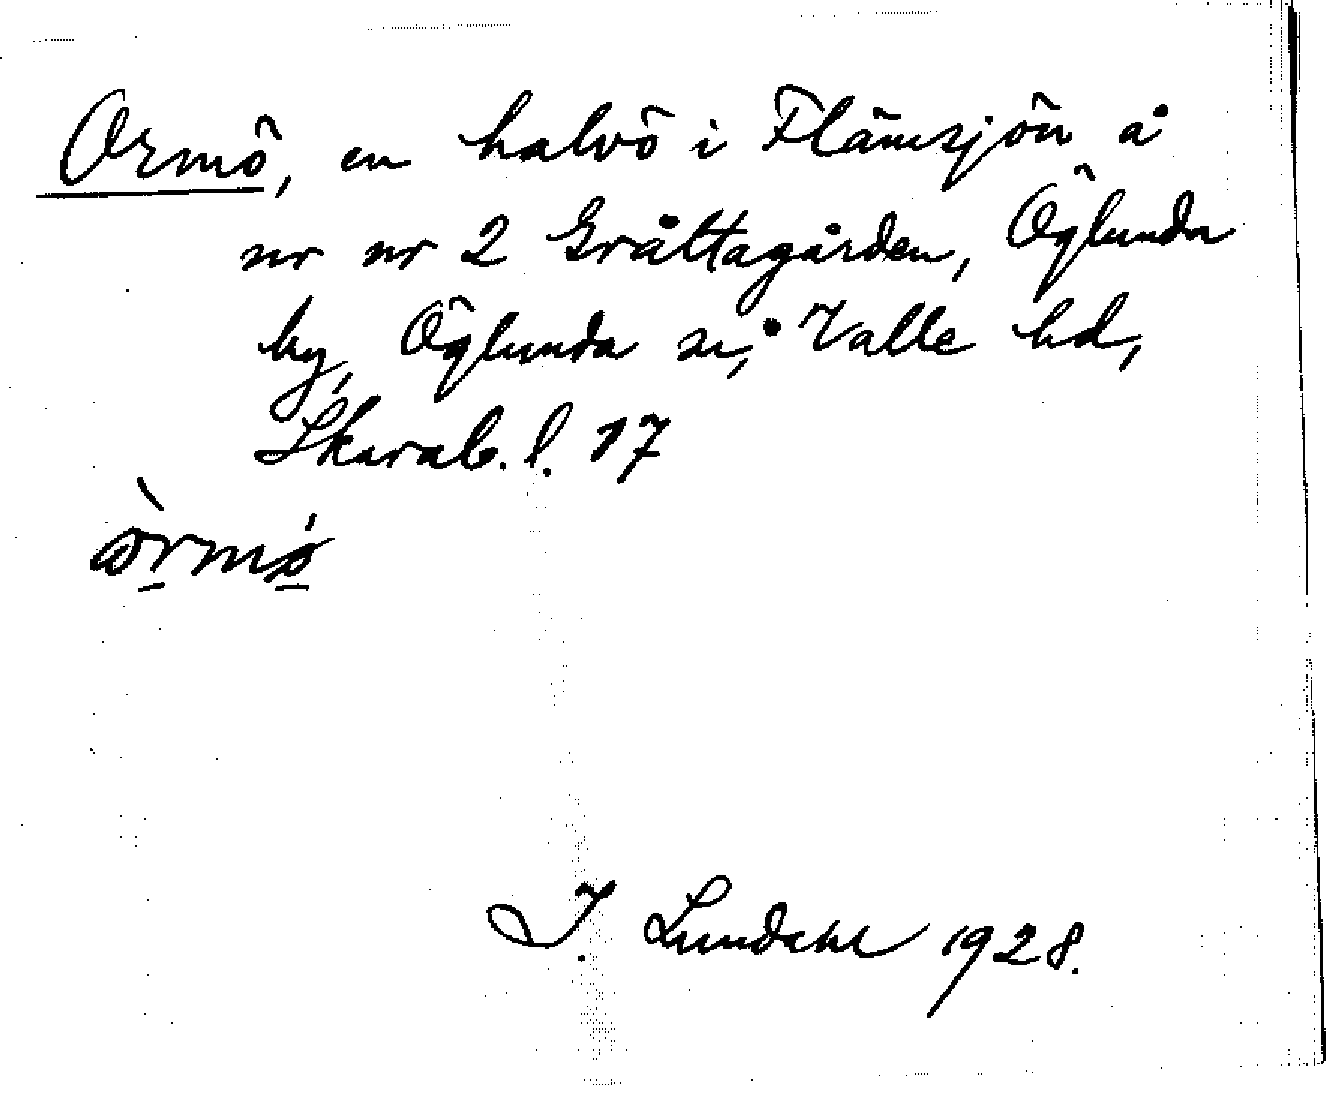 Ormö, en halvö i Flämsjön å
nr nr 2 Gråltagården, Öglunda
by, Öglunda sn, Valle hd,
Skarab. l. 17
òrmǿ
I. Lundahl 1928.